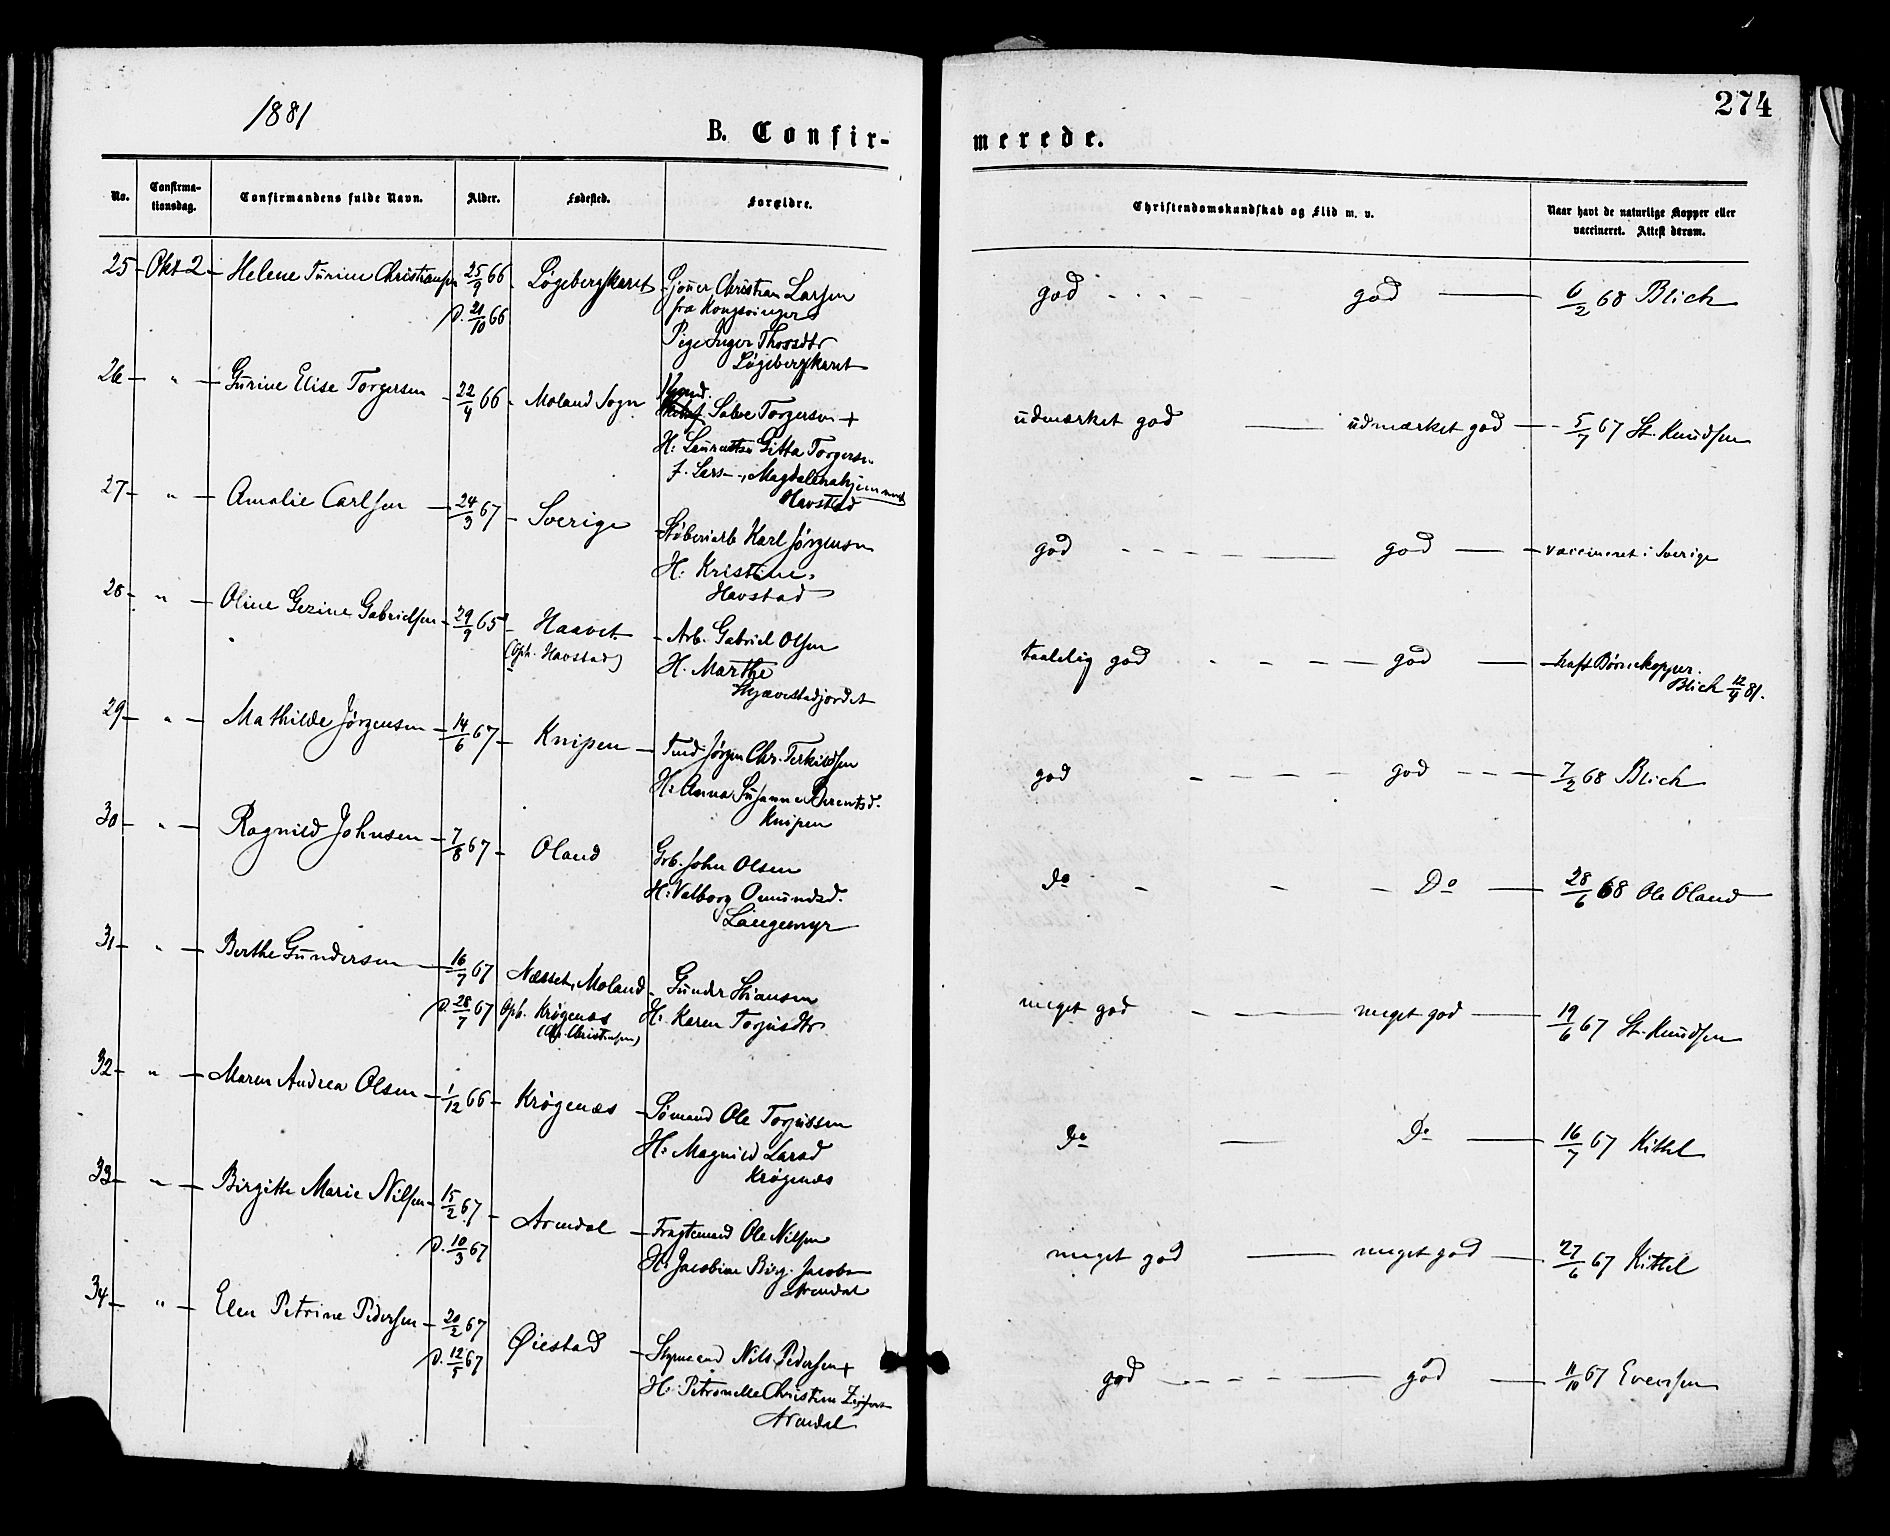 1881
274
B. Confir-
merede.
No.
Confirma-
tionsdag.
Confirmandens fulde Navn.
Alder.
Fødested.
Forældre.
Christendomskundskab og Flid m. v.
Naar havt de naturlige Kopper eller
vaccineret. Attest derom.
25 - Okt 2 - Helene Turine Christiansen 25/9 66 - Løgebergskaret - Christian Larsen god - - - - god — 6/2 68 Blich
D. 21/10 66 fra Kongsvinger
Pige Inger Thorsdtr
Løgebergskaret
26 - " - Gurine Elise Torgersen - 22/4 66 - Moland Sogn Salve Torgersen + udmærket god — udmærket god — 5/7 67 St. Knudsen
H: Gitta Torgersen
Magdalena
Havstad
27 - " - Amalie Carlsen - 24/3 67 - Sverige Støberiarb Karl Jørgensen god - - - - god — vaccineret i Sverige
H: Kristine
Havstad
28 - " - Oline Gezine Gabrielsen - 29/9 65 - Haavet - Arb. Gabriel Olsen taalelig god - - - - god — haft Børnekopper.
(Oph. Havstad) H. Marthe Blich 12/9 81.
29 - " - Mathilde Jørgensen - 14/6 67 - Knipen - Jørgen Chr. Terkildsen god - - - - god - - - 7/2 68 Blich
H: Anna Susanne Berentsd.
Knipen
30 - " - Ragnild Johnsen - 7/8 67 - Oland John Olsen Do - - - Do — 28/6 68 Ole Oland
H: Valborg Omundsd.
Langemyr
31 - " - Berthe Gundersen — 16/7 67 Næsset, Moland - Gunder meget god - - - meget god — 19/6 67 St. Knudsen
D. 28/7 67 Oph. Krøgenæs H: Karen Torjusdtr
32 - " - Maren Andrea Olsen - 1/12 66 - Krøgenæs - Sømand Ole Torjussen Do — Do — 16/7 67 Kittel
H: Magnild Larsd
Krøgenæs
33 - " - Birgitte Marie Nilsen - 15/2 67 - Arendal - Fragtemand Ole Nilsen meget god — meget god — 27/6 67 Kittel
D. 10/3 67 H: Jacobine Birg. Jacobs
Arendal
34 - " - Elen Petrine Pedersen - 20/2 67 Øiestad - Styrmand Nils Pedersen + god - - - - god — 11/10 67 Evensen
D. 12/5 67 H: Petronelle Christine
Arendal